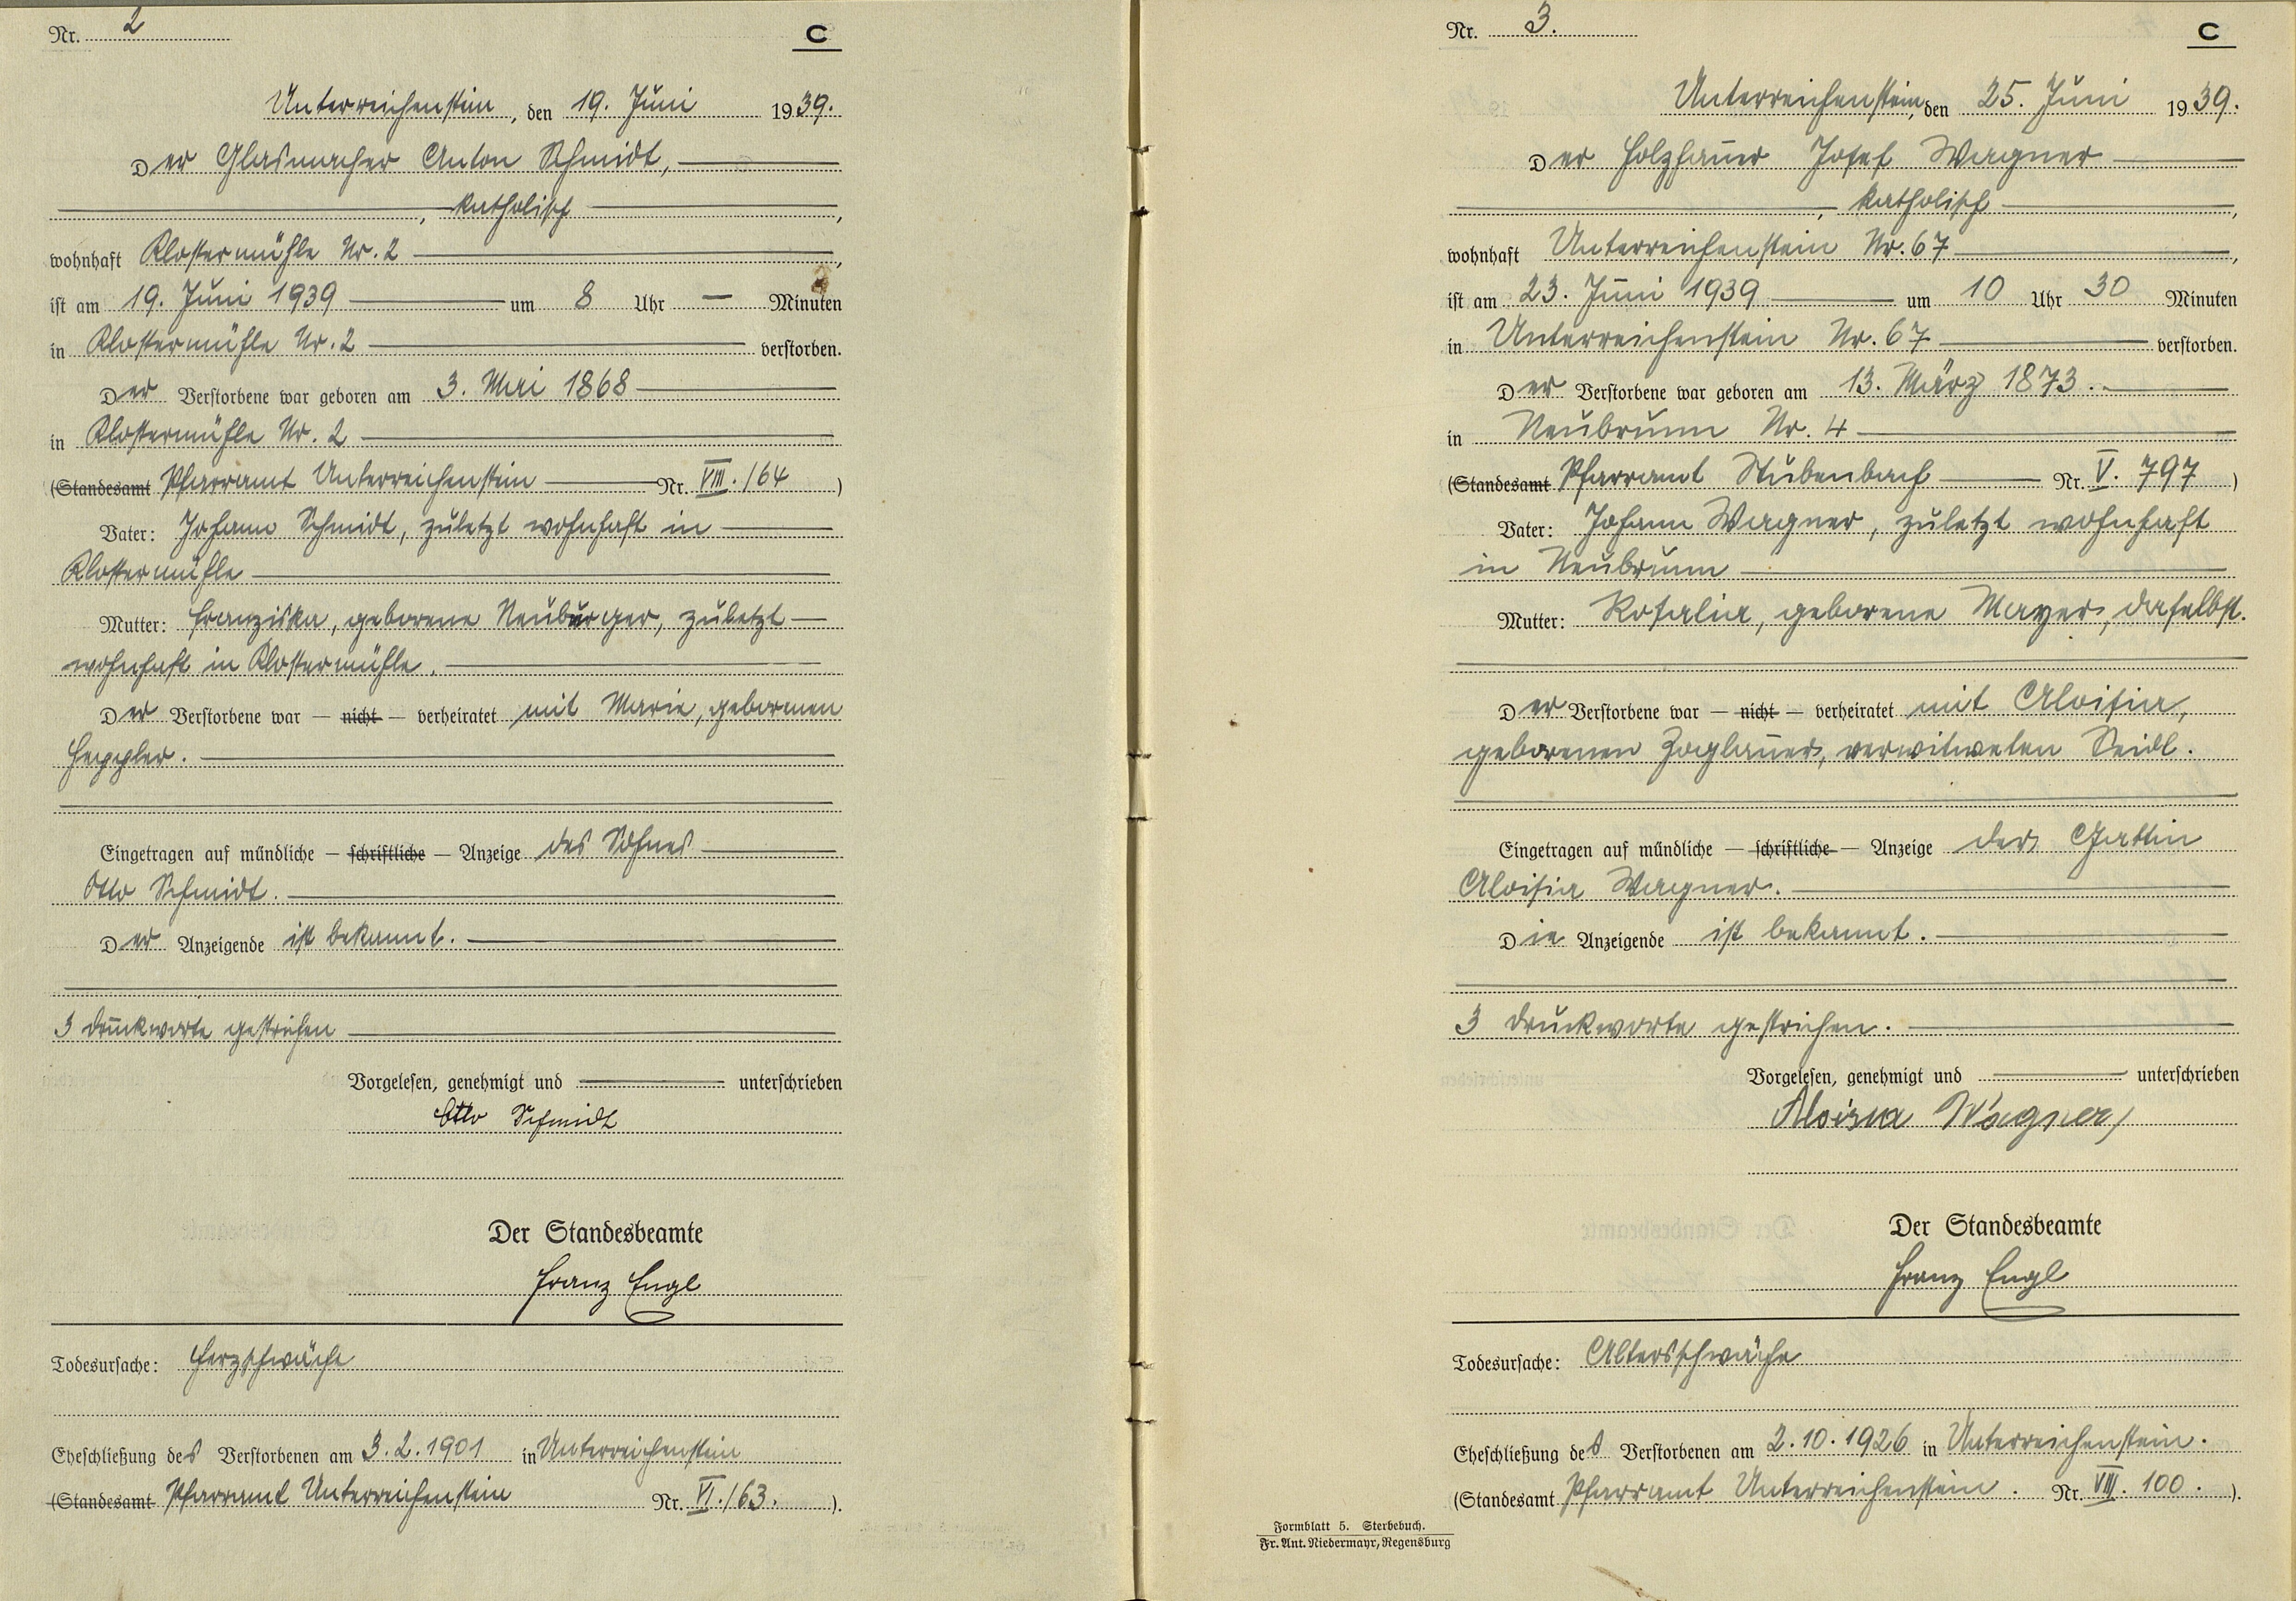 Nr. 2
C
Unterreichenstein, den 19. Juni 1939.
Der Glasmacher Anton Schmidt,
, katholisch,
wohnhaft Klostermühle Nr. 2,
ist am 19. Juni 1939 um 8 Uhr — Minuten
in Klostermühle Nr. 2 verstorben.
Der Verstorbene war geboren am 3. Mai 1868
in Klostermühle Nr. 2
(Standesamt Pfarramt Unterreichenstein Nr. VIII./64)
Vater: Johann Schmidt, zuletzt wohnhaft in
Klostermühle
Mutter: Franziska, geborene Neuburger, zuletzt
wohnhaft in Klostermühle.
Der Verstorbene war — nicht — verheiratet mit Marie, geborenen
Heppler.
Eingetragen auf mündliche — schriftliche — Anzeige des Sohnes
Otto Schmidt.
Der Anzeigende ist bekannt.
3 Druckworte gestrichen
Vorgelesen, genehmigt und unterschrieben
Otto Schmidt
Der Standesbeamte
Franz Engl
Todesursache: Herzschwäche
Eheschließung des Verstorbenen am 3.2.1901 in Unterreichenstein
(Standesamt Pfarramt Unterreichenstein Nr. VI./63.).
Nr. 3.
C
Unterreichenstein, den 25. Juni 1939.
Der Holzhauer Josef Wagner
, katholisch,
wohnhaft Unterreichenstein Nr. 67,
ist am 23. Juni 1939 um 10 Uhr 30 Minuten
in Unterreichenstein Nr. 67 verstorben.
Der Verstorbene war geboren am 13. März 1873.
in Neubrunn Nr. 4
(Standesamt Pfarramt Stubenbach Nr. V. 797)
Vater: Johann Wagner, zuletzt wohnhaft
in Neubrunn
Mutter: Rosalia, geborene Mayer, daselbst.
Der Verstorbene war — nicht — verheiratet mit Aloisia,
geborenen Zoglauer, verwitweten Seidl.
Eingetragen auf mündliche — schriftliche — Anzeige der Gattin
Aloisia Wagner.
Die Anzeigende ist bekannt.
3 Druckworte gestrichen.
Vorgelesen, genehmigt und unterschrieben
Aloisia Wagner
Der Standesbeamte
Franz Engl
Todesursache: Altersschwäche
Eheschließung des Verstorbenen am 2.10.1926 in Unterreichenstein.
(Standesamt Pfarramt Unterreichenstein. Nr. VIII. 100.).
Formblatt 5. Sterbebuch.
Fr. Ant. Niedermayr, Regensburg